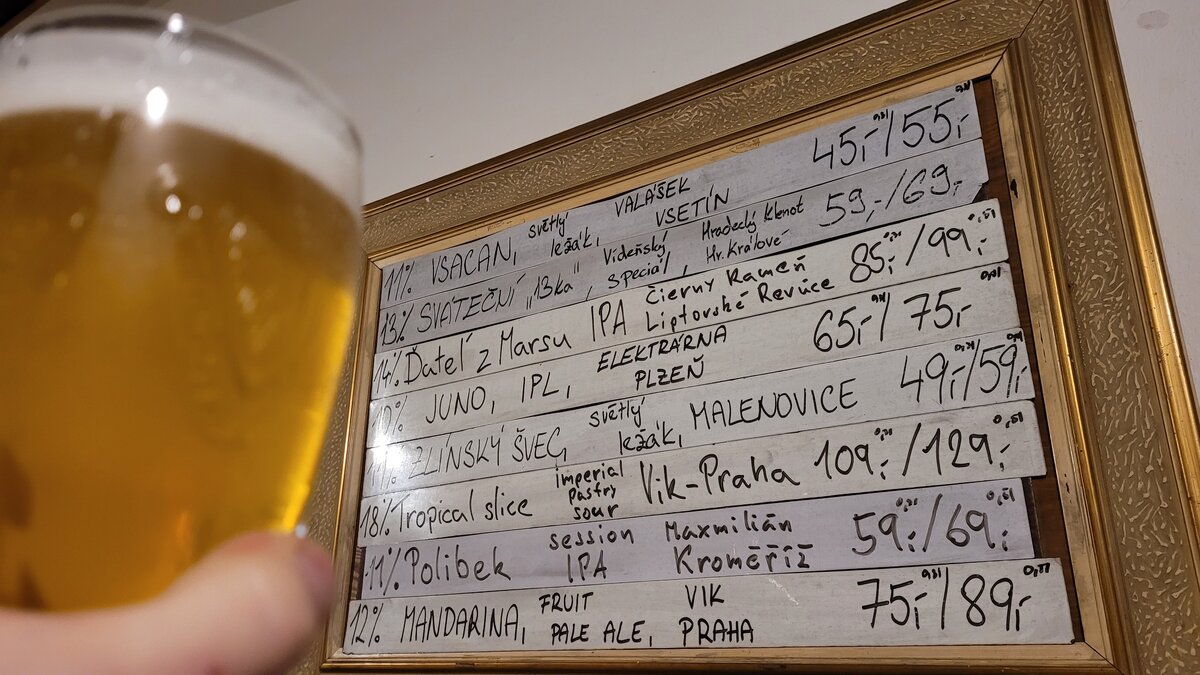 11% VSACAN, světlý ležák, VALÁŠEK VSETÍN 45,-/55,-
13% SVÁTEČNÍ „13ka", Vídeňský speciál, Hradecký Klenot Hr. Králové 59,-/69,-
14% Ďateľ z Marsu IPA Čierny Kameň Liptovské Revúce 85,-/99,-
10% JUNO, IPL, ELEKTRÁRNA PLZEŇ 65,-/75,-
11% ZLÍNSKÝ ŠVEC, světlý ležák, MALENOVICE 49,-/59,-
18% Tropical slice imperial pastry sour Vik-Praha 109,-/129,-
11% Polibek session IPA Maxmilián Kroměříž 59,-/69,-
12% MANDARINA, FRUIT PALE ALE, VIK PRAHA 75,-/89,-